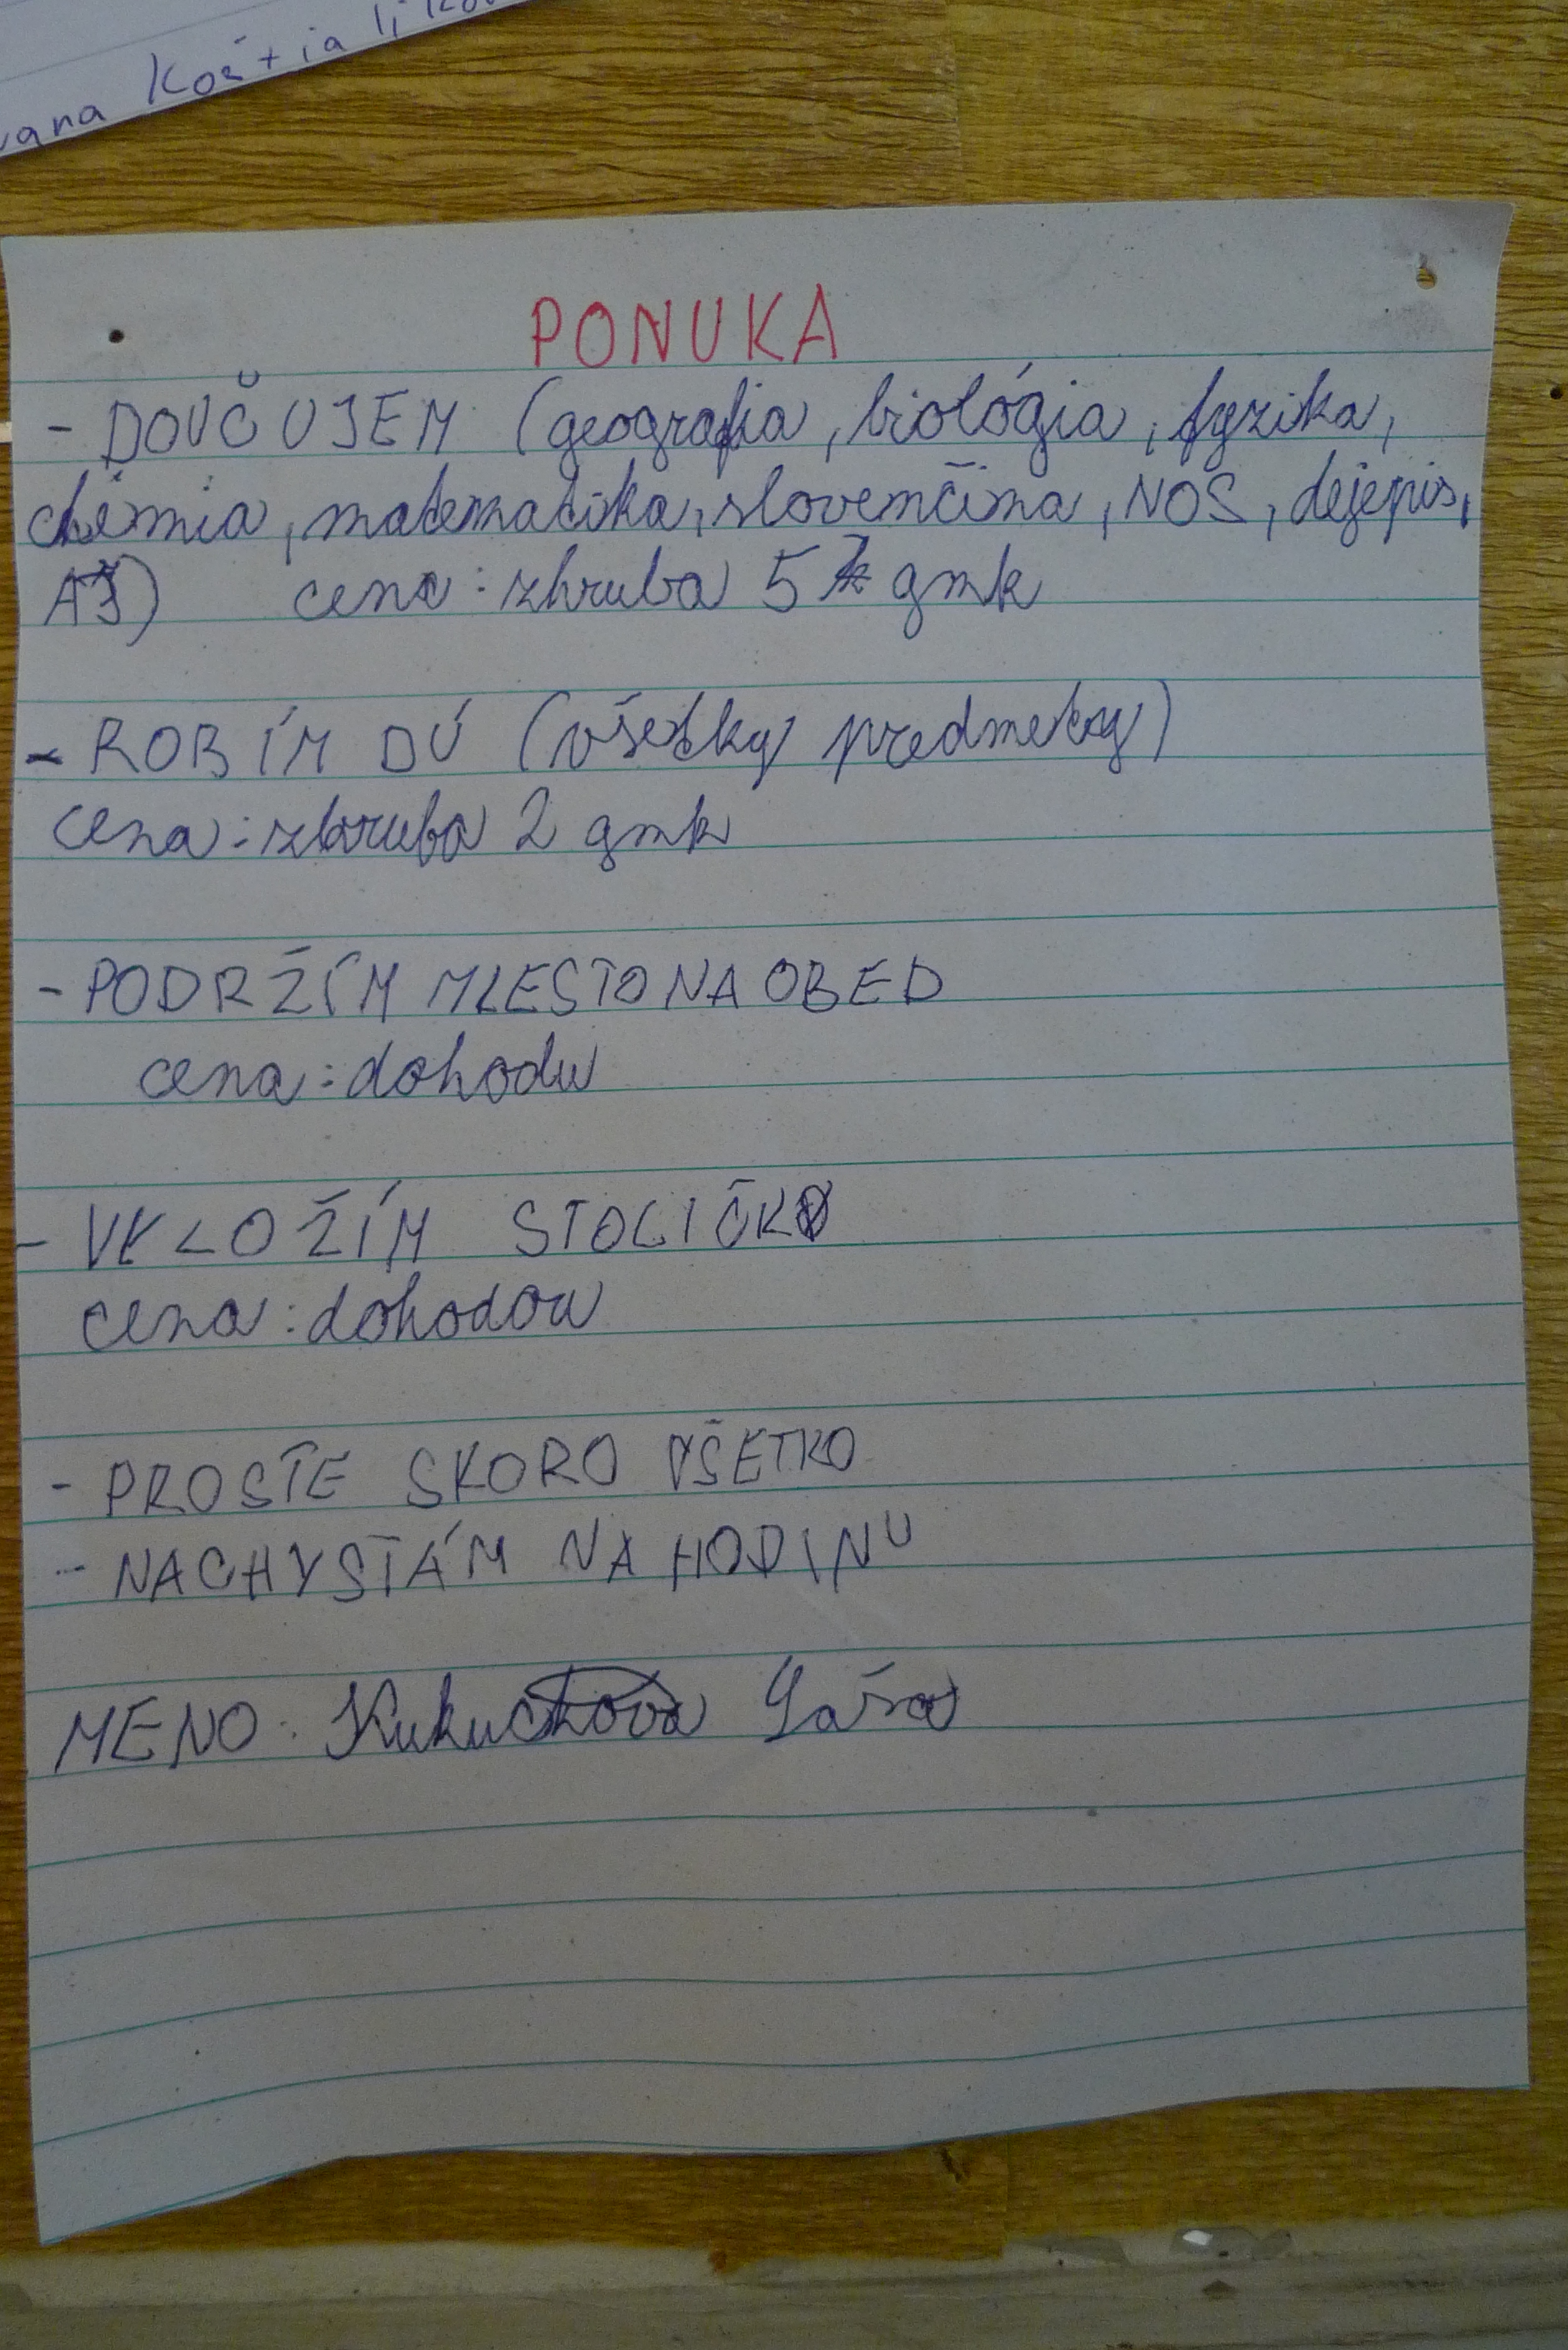 vana Koštiali
PONUKA
- DOUČUJEM (geografia, biológia, fyzika,
chémia, matematika, slovenčina, NOS, dejepis,
AJ) cena: zhruba 5 gmk
- ROBÍM DÚ (všetky predmety)
cena: zhruba 2 gmk
- PODRŽÍM MIESTO NA OBED
cena: dohodu
- VYLOŽÍM STOLIČK
cena: dohodou
- PROSTE SKORO VŠETKO
- NACHYSTÁM NA HODINU
MENO: Kukuchova Sára